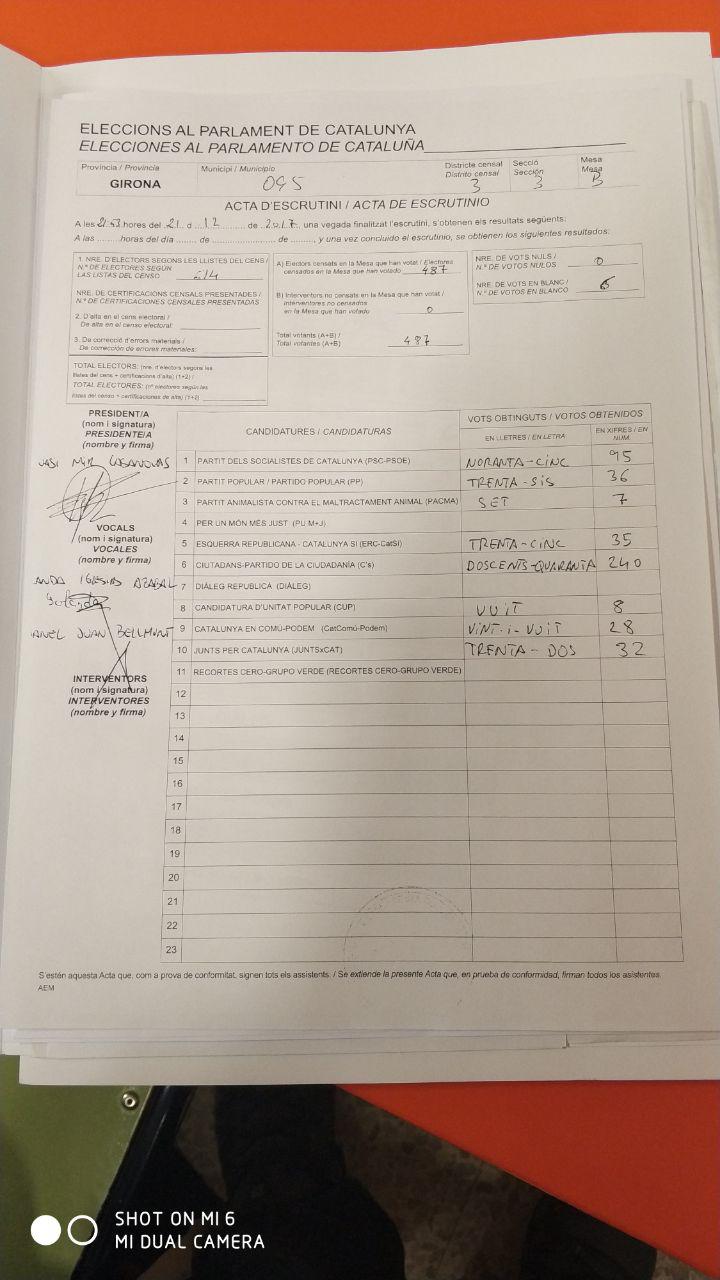 ELECCIONS AL PARLAMENT DE CATALUNYA
ELECCIONES AL PARLAMENTO DE CATALUÑA
Província / Provincia
Municipi / Municipio
Districte censal
Distrito censal
Secció
Sección
Mesa
Mesa
GIRONA 095 3 3 B
ACTA D'ESCRUTINI / ACTA DE ESCRUTINIO
A les 21:53 hores del 21 d 12 de 2017, una vegada finalitzat l'escrutini, s'obtenen els resultats següents:
A las ........ horas del día ....... de .................. de ........, y una vez concluido el escrutinio, se obtienen los siguientes resultados:
1. NRE. D'ELECTORS SEGONS LES LLISTES DEL CENS /
N.º DE ELECTORES SEGÚN
LAS LISTAS DEL CENSO
NRE. DE CERTIFICACIONS CENSALS PRESENTADES /
N.º DE CERTIFICACIONES CENSALES PRESENTADAS
2. D'alta en el cens electoral /
De alta en el censo electoral:
3. De correcció d'errors materials /
De corrección de errores materiales:
TOTAL ELECTORS: (nre. d'electors segons les
llistes del cens + certificacions d'alta) (1+2) /
TOTAL ELECTORES: (nº electores según las
listas del censo + certificaciones de alta) (1+2)
A) Electors censats en la Mesa que han votat / Electores
censados en la Mesa que han votado 487
B) Interventors no censats en la Mesa que han votat /
Interventores no censados
en la Mesa que han votado 0
Total votants (A+B) /
Total votantes (A+B) 487
NRE. DE VOTS NULS /
N.º DE VOTOS NULOS 0
NRE. DE VOTS EN BLANC /
N.º DE VOTOS EN BLANCO 6
PRESIDENT/A
(nom i signatura)
PRESIDENTE/A
(nombre y firma)
VOCALS
(nom i signatura)
VOCALES
(nombre y firma)
JUAN BELLMUNT
INTERVENTORS
(nom i signatura)
INTERVENTORES
(nombre y firma)
CANDIDATURES / CANDIDATURAS
VOTS OBTINGUTS / VOTOS OBTENIDOS
EN LLETRES / EN LETRA
EN XIFRES / EN NÚM.
1 PARTIT DELS SOCIALISTES DE CATALUNYA (PSC-PSOE) NORANTA-CINC 95
2 PARTIT POPULAR / PARTIDO POPULAR (PP) TRENTA-SIS 36
3 PARTIT ANIMALISTA CONTRA EL MALTRACTAMENT ANIMAL (PACMA) SET 7
4 PER UN MÓN MÉS JUST (PU M+J)
5 ESQUERRA REPUBLICANA - CATALUNYA SÍ (ERC-CatSí) TRENTA-CINC 35
6 CIUTADANS-PARTIDO DE LA CIUDADANÍA (C's) DOSCENTS-QUARANTA 240
7 DIÀLEG REPUBLICÀ (DIÀLEG)
8 CANDIDATURA D'UNITAT POPULAR (CUP) VUIT 8
9 CATALUNYA EN COMÚ-PODEM (CatComú-Podem) VINT-I-VUIT 28
10 JUNTS PER CATALUNYA (JUNTSxCAT) TRENTA-DOS 32
11 RECORTES CERO-GRUPO VERDE (RECORTES CERO-GRUPO VERDE)
12
13
14
15
16
17
18
19
20
21
22
23
S'estén aquesta Acta que, com a prova de conformitat, signen tots els assistents. / Se extiende la presente Acta que, en prueba de conformidad, firman todos los asistentes.
AEM
SHOT ON MI 6
MI DUAL CAMERA